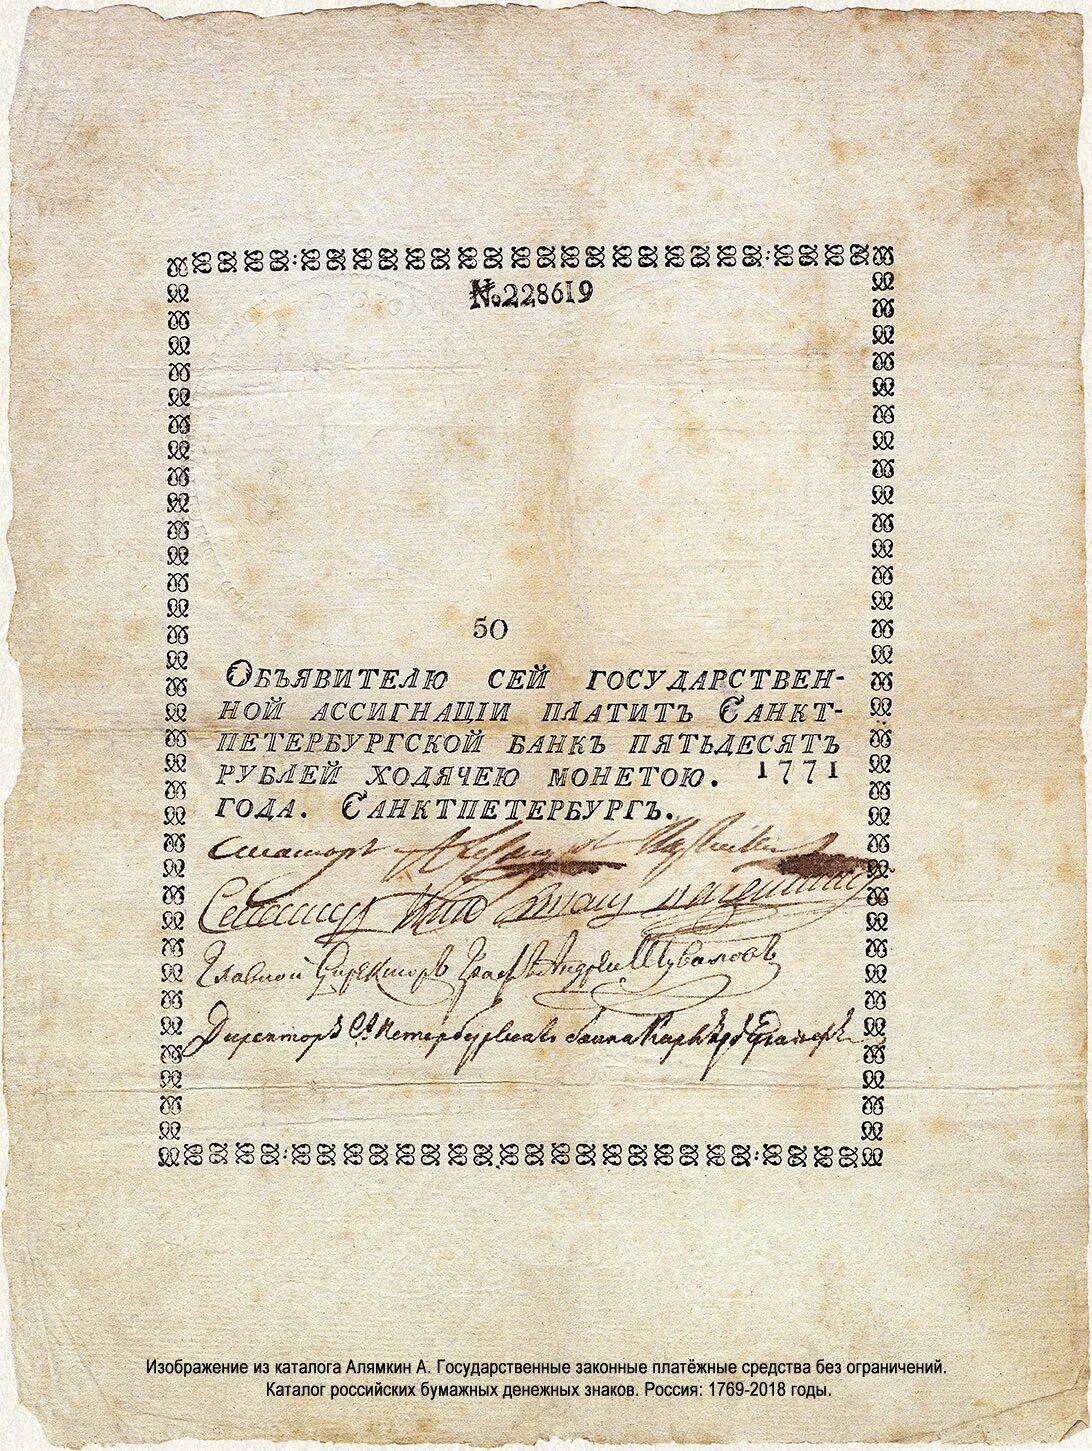 №.228619
50
Объявителю сей государствен-
ной ассигнацiи платитъ Санкт-
петербургской банкъ пятьдесятъ
рублей ходячею монетою. 1771
года. Санктпетербургъ.
Сенаторъ
Главной Директоръ Графъ Андрей Шуваловъ
Директоръ Ст Петербурскаго банка
Изображение из каталога Алямкин А. Государственные законные платёжные средства без ограничений.
Каталог российских бумажных денежных знаков. Россия: 1769-2018 годы.